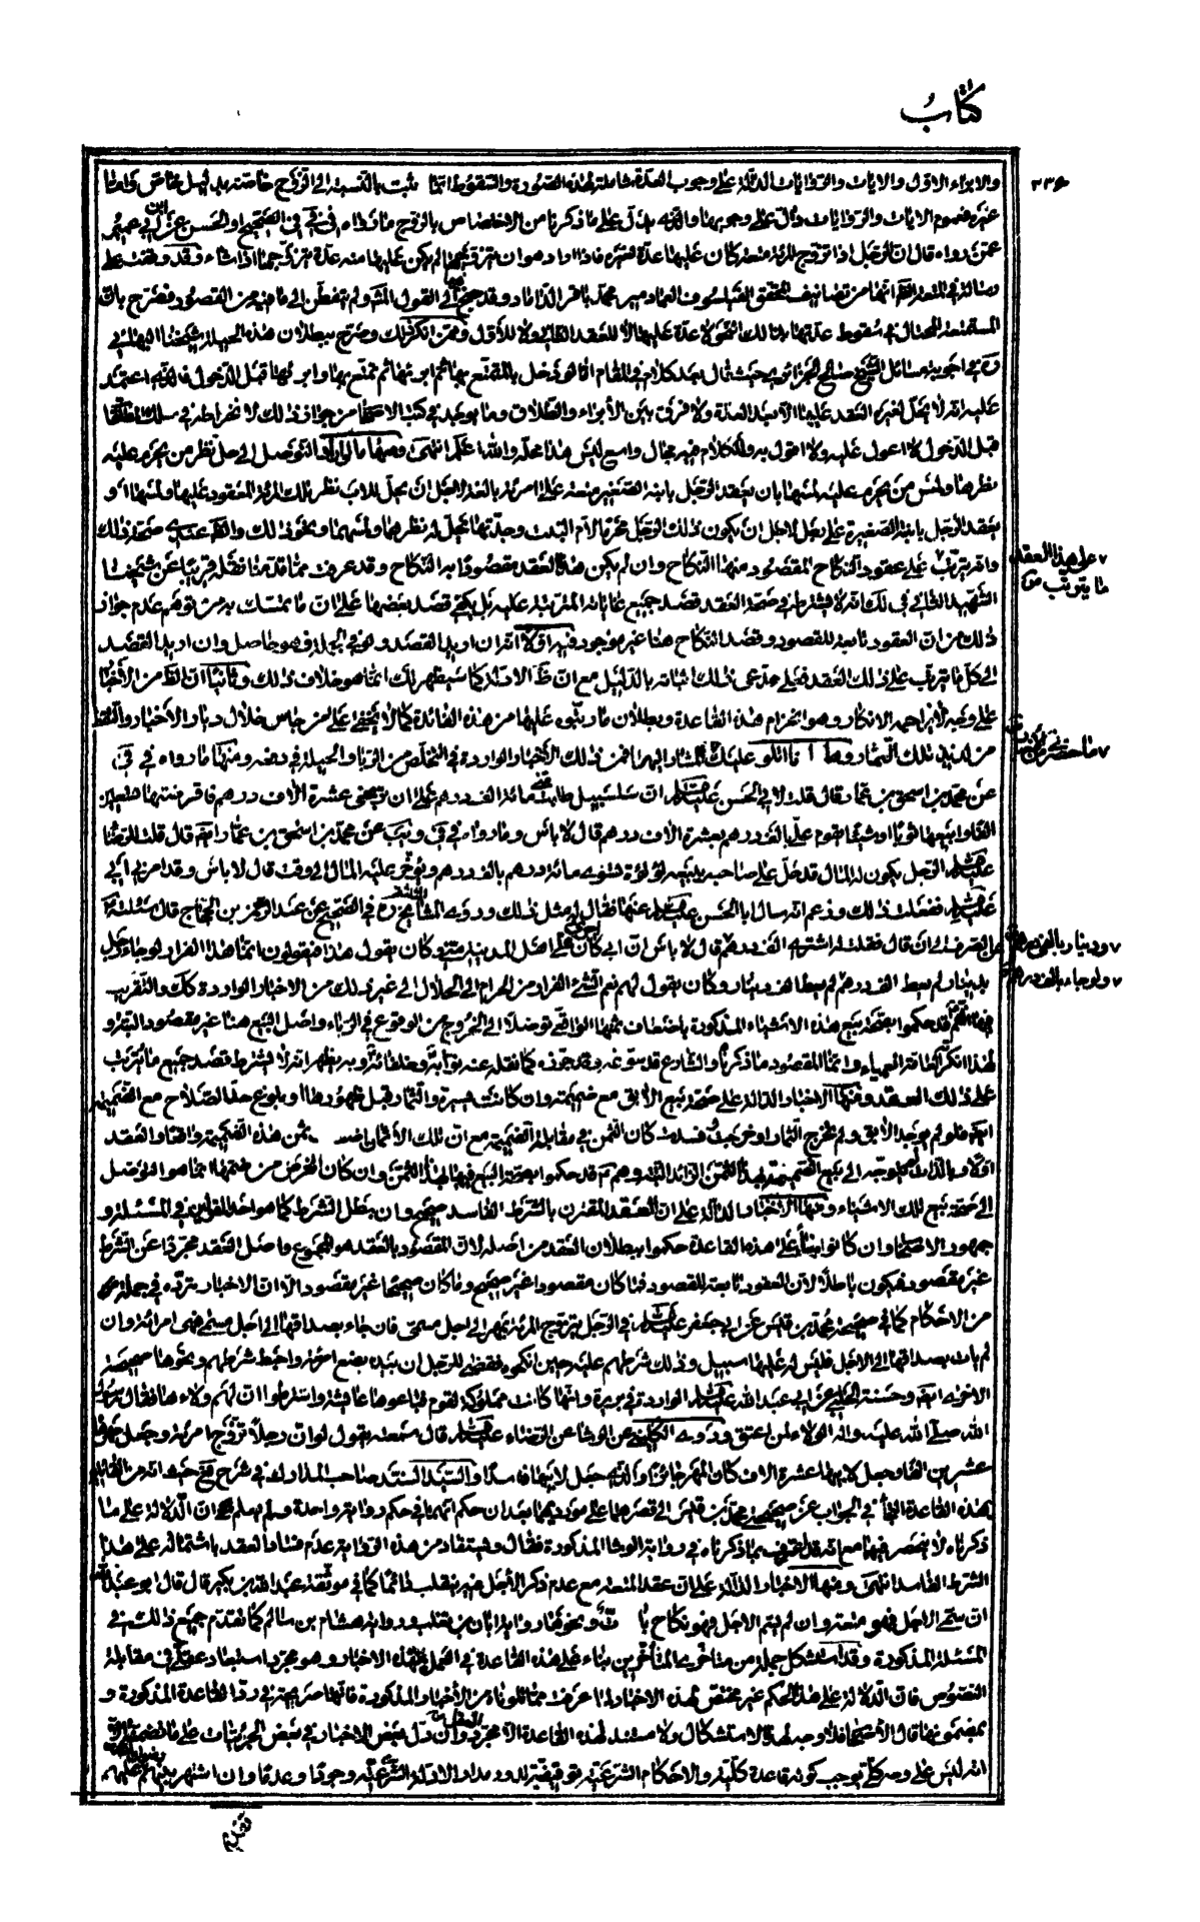 كتاب
٢٣٦
والابراء الاول والايات والروايات الدالة على وجوب العدة شاملة لهذه الصورة والسقوط انما ثبت بالنسبة الى الزوج خاصة بدليل خاص واما
غيره فعموم الايات والروايات دال على وجوبها والذي يدل على ما ذكرنا من الاختصاص بالزوج ما رواه في في الصحيح او الحسن عن ابن ابي عمير
عمن رواه قال ان الرجل اذا تزوج المرأة متعة كان عليها عدة لغيره فاذا اراد هو ان يتزوجها لم يكن عليها منه عدة يتزوجها اذا شاء وقد وقفت على
رسالة في المتعة الظاهر انها من تصانيف المحقق الفيلسوف العماد مير محمد باقر الداماد وقد جنح فيها الى القول المشهور ولم يتفطن الى ما فيه من القصور فصرح بان
المستمتعة المحتال في سقوط عدتها بذلك النحو لا عدة عليها لا للعقد الثاني ولا للاول وممن انكر ذلك وصرح ببطلان هذه الحيلة شيخنا البهائي
ره في اجوبة مسائل الشيخ صالح الجزائري حيث قال بعد كلام في المقام اما لو دخل بالمتمتع بها ثم ابرئها ثم تمتع بها وابرئها قبل الدخول فالذي اعتمد
عليه انه لا يحل لغيره العقد عليها الا بعد العدة ولا فرق بين الابراء والطلاق وما يوجد في كتب الاصحاب من جواز ذلك لانخراطه في سلك المطلقة
قبل الدخول لا اعول عليه ولا اقول به وللكلام فيه مجال واسع ليس هذا محله والله اعلم انتهى ومنها ما لو اراد التوصل الى حل نظر من يحرم عليه
نظرها ولمس من يحرم عليه لمسها بان يعقد الرجل بابنه الصغير متعة على امرأة بالغة لاجل ان يحل للاب نظر تلك المرأة المعقود عليها ولمسها او
يعقد الرجل بابنته الصغيرة على رجل لاجل ان يكون ذلك الرجل محرما لام البنت وجدتها فيحل له نظرهما ولمسهما ونحو ذلك والظاهر عندي صحة ذلك
وانه يترتب على عقود النكاح المقصود منها النكاح وان لم يكن هذا العقد مقصودا به النكاح وقد عرفت مما قدمنا نقله قريبا عن شيخنا
الشهيد الثاني في لك انه لا يشترط في صحة العقد قصد جميع غاياته المترتبة عليه بل يكفي قصد بعضها على ان ما تمسك به من توهم عدم جواز
ذلك من ان العقود تابعة للقصود وقصد النكاح هنا غير موجود فيه اولا انه ان اريد القصد ولو في الجملة فهو حاصل وان اريد القصد
الى كل ما يترتب على ذلك العقد فعلى مدعي ذلك اثباته بالدليل مع ان ظاهر الادلة كما سيظهر لك انما هو خلاف ذلك وثانيا ان الظاهر من الاخبار
على وجه لا يزاحمه الانكار وهو انخرام هذه القاعدة وبطلان ما رتبوه عليها من هذه الفائدة كما لا يخفى على من جاس خلال ديار الاخبار والتقط
من لذيذ تلك الثمار وها انا اتلو عليك المشار اليها فمن ذلك الاخبار الواردة في التخلص من الربا والحيلة في دفعه ومنها ما رواه في في
عن محمد بن اسحق بن عمار قال قلت لابي الحسن عليه السلام ان سلسبيل طلبت مني مائة الف درهم على ان تربحني عشرة الاف درهم فاقرضتها تسعين
الفا وابيعها ثوبا وشيئا تقوم على بالف درهم بعشرة الاف درهم قال لا بأس وما رواه في في ويب عن محمد بن اسحق بن عمار ايضا قال قلت للرضا
عليه السلام الرجل يكون له المال قد حل على صاحبه يبيعه لؤلؤة تسوى مائة درهم بالف درهم ويؤخر عليه المال الى وقت قال لا بأس وقد امرني ابي
عليه السلام ففعلت ذلك وزعم انه سأل ابا الحسن عليه السلام عنها فقال له مثل ذلك وروى المشايخ الثلثة ره في الصحيح عن عبد الرحمن بن الحجاج قال سئلته
عن الصرف الى ان قال فقلت له اشتري الف درهم قال لا بأس ان ابي كان اجرى على اهل المدينة مني وكان يقول هذا فيقولون انما هذا الفرار لو جاء رجل
بدينار لم يعط الف درهم لم يعط الف دينار وكان يقول لهم نعم الشيء الفرار من الحرام الى الحلال الى غير ذلك من الاخبار الواردة كك والتقريب
فيها انهم قد حكموا بصحة بيع هذه الاشياء المذكورة باضعاف ثمنها الواقعي توصلا الى الخروج من الوقوع في الربا واصل البيع هنا غير مقصود البتة و
لهذا انكر العامة العمياء وانما المقصود ما ذكرناه والشارع قد سوغه وقد جوزه كما نقله عنه نوابه وخلفائه وبه يظهر انه لا يشترط قصد جميع ما يترتب
على ذلك العقد ومنها الاخبار الدالة على صحة بيع الابق مع ضميمة وان كانت يسيرة والثمار قبل ظهورها او بلوغ حد الصلاح مع الضميمة
ايضا فلو لم يوجد الابق ولم يخرج الثمار او خرجت وفسدت كان الثمن في مقابلة الضميمة مع ان تلك الاثمان ليست ثمن هذه الضميمة واقعا والعقد
اولا وبالذات لم يتوجه الى بيع الضميمة بهذا الثمن الزائد البتة وهم ع قد حكموا بصحة البيع فيها بهذا الثمن وان كان الغرض من ضمها انما هو التوصل
الى صحة بيع تلك الاشياء ومنها الاخبار الدالة على ان العقد المقترن بالشرط الفاسد صحيح وان بطل الشرط كما هو احد القولين في المسئلة و
جمهور الاصحاب وان كانوا بناء على هذه القاعدة حكموا ببطلان العقد من اصله لان المقصود بالعقد هو المجموع واصل العقد مجردا عن الشرط
غير مقصود فيكون باطلا لان العقود تابعة للقصود فما كان مقصودا غير صحيح وما كان صحيحا غير مقصود الا ان الاخبار ترده في جملة
من الاحكام كما في صحيحة محمد بن قيس عن ابي جعفر عليه السلام في الرجل يتزوج المرأة بمهر الى اجل مسمى فان جاء بصداقها الى اجل مسمى فهي امرأته وان
لم يأت بصداقها الى الاجل فليس له عليها سبيل وذلك شرطهم عليه حين انكحوه فقضى للرجل ان بيده بضع امرأته واحبط شرطهم ونحوها صحيحة
الاخرى ايضا وحسنة الحلبي عن ابي عبد الله عليه السلام الواردة في بريرة وانها كانت مملوكة لقوم فباعوها عايشة واشترطوا ان لهم ولاءها فقال رسول
الله صلى الله عليه واله الولاء لمن اعتق وروى الكليني عن الوشا عن الرضا عليه السلام قال سمعته يقول لو ان رجلا تزوج امرأة وجعل مهرها
عشرين الفا وجعل لابيها عشرة الاف كان المهر جائزا والذي جعل لابيها فاسدا والسيد السند صاحب المدارك في شرح فع حيث انه من القائلين
بهذه القاعدة التجأ في الجواب عن صحيحة محمد بن قيس الى قصرها على موردها بعد ان حكم انهما في حكم رواية واحدة ولم يعلم ان الدلالة على ما
ذكرناه لا تنحصر فيها مع انه قد اعترف بما ذكرناه في رواية الوشا المذكورة فقال ويستفاد من هذه الرواية عدم فساد العقد باشتماله على هذا
الشرط الفاسد انتهى ومنها الاخبار الدالة على ان عقد المتعة مع عدم ذكر الاجل فيه ينقلب دائما كما في موثقة عبد الله بن بكير قال قال ابو عبد الله
ان سمى الاجل فهو متعة وان لم يسم الاجل فهو نكاح بات ونحوها رواية ابان بن تغلب ورواية هشام بن سالم كما تقدم جميع ذلك في
المسئلة المذكورة وقد استشكل جملة من متأخري المتأخرين بناء على هذه القاعدة في العمل بهذه الاخبار وهو مجرد استبعاد عقلي في مقابلة
النصوص فان الدلالة على هذا الحكم غير مختص بهذه الاخبار لما عرفت مما تلوناه من الاخبار المذكورة فانها صريحة في رد القاعدة المذكورة و
بمضمونها قال الاصحاب فلا وجه لهذا الاستشكال ولا مستند لهذه القاعدة الا مجرد العقل وان دل بعض الاخبار في بعض الجزئيات على ما تضمنته الا
انه ليس على وجه كلي يوجب كونه قاعدة كلية والاحكام الشرعية توقيفية تدور مدار الادلة الشرعية وجودا وعدما وان اشتهر بينهم رضوان الله عليهم
على هذا العقد
ما يترتب
ما حضرني
ودينار بالفي درهم
ولو جاء بالف درهم
تقديم